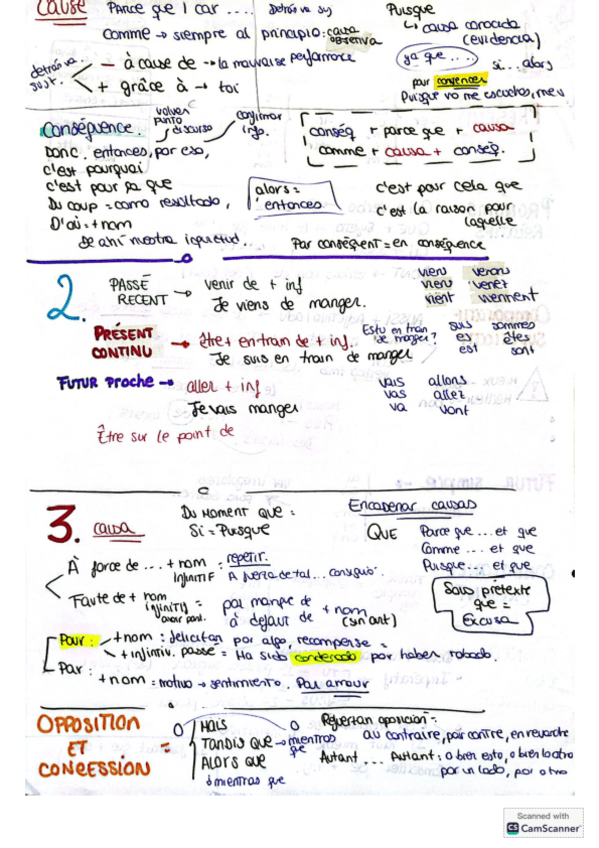 Cause
Parce que / car .... Detrás va suj
Comme → siempre al principio: causa
observiva
detrás va
sust.
- à cause de → la mauvaise performance
+ grâce à → toi
Puisque
↳ causa conocida
(evidencia)
ya que .... si...alors
pour convencer
Conséquence.
volver
punto
discurso
confirmar
info.
Donc, entonces, por eso,
c'est pourquoi
c'est pour ça que
Du coup = como resultado,
D'où = + nom
De ahí nuestra inquietud.
alors =
entonces
conséq + parce que + causa
comme + causa + conséq.
c'est pour cela que
c'est la raison pour
laquelle
Par conséquent = en conséquence
2.
PASSÉ
RECENT → venir de + inf
Je viens de manger.
viens venons
viens venez
vient viennent
PRÉSENT
CONTINU → être + en train de + inf.
Je suis en train de manger
Estu en train
de manger?
suis sommes
es êtes
est sont
FUTUR Proche → aller + inf
Je vais manger
vais allons
vas allez
va vont
Être sur le point de
3. causa
Du moment que =
Si = Puisque
Encadenar causas
QUE
Parce que ... et que
Comme .... et que
Puisque... et que
À force de ... + nom = repetir.
INFINITIF A fuerza de tal... consiguió.
Faute de + nom
infinitif = par manque de
à défaut de + nom
(sin ant)
Sous prétexte
que =
Excusa
Pour: + nom: felicitan por algo, recompense =
+ infinitiv. passé = Ha sido condenado por haber robado.
Par:
+ nom = motivo → sentimiento. Par amour
OPPOSITION
ET
CONCESSION =
MAIS
TANDIS QUE → mientras
que
ALORS QUE
mientras que
au contraire, par contre, en revanche
Autant ... Autant: o bien esto, o bien lo otro
por un lado, por otro
Scanned with
CS CamScanner